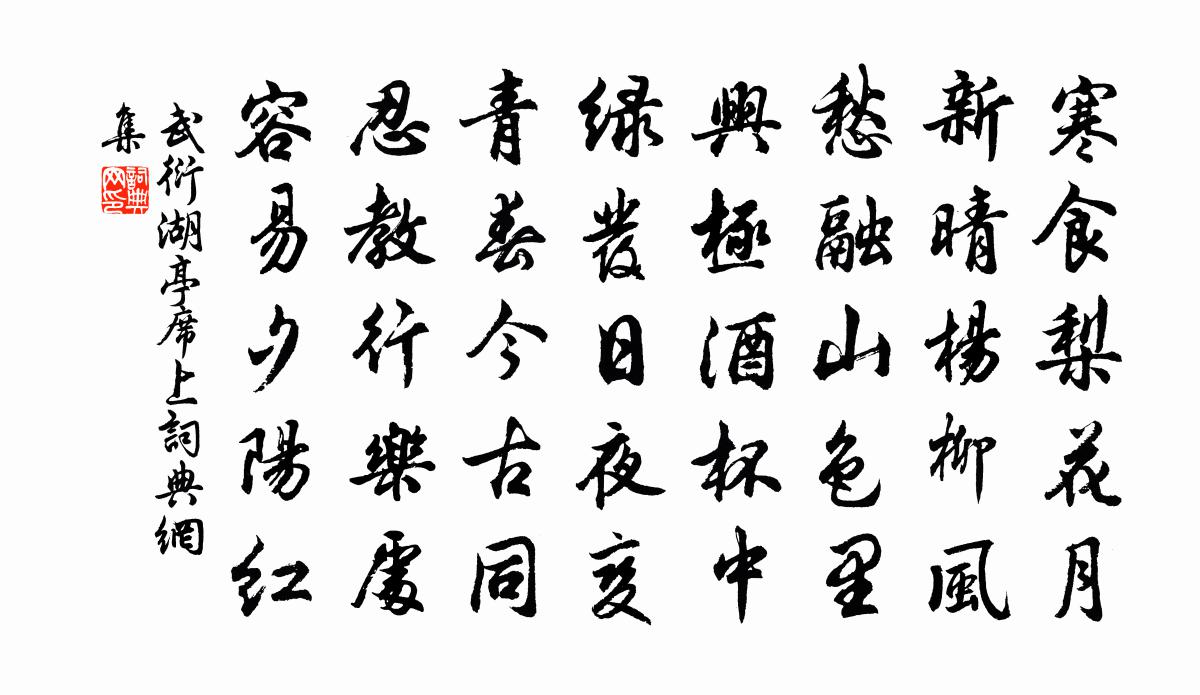 寒食梨花月
新晴楊柳風
愁融山色里
興極酒杯中
緑發日夜变
青春今古同
忍教行樂處
容易夕陽红
武衍湖亭席上詞典網
集
詞典
网印